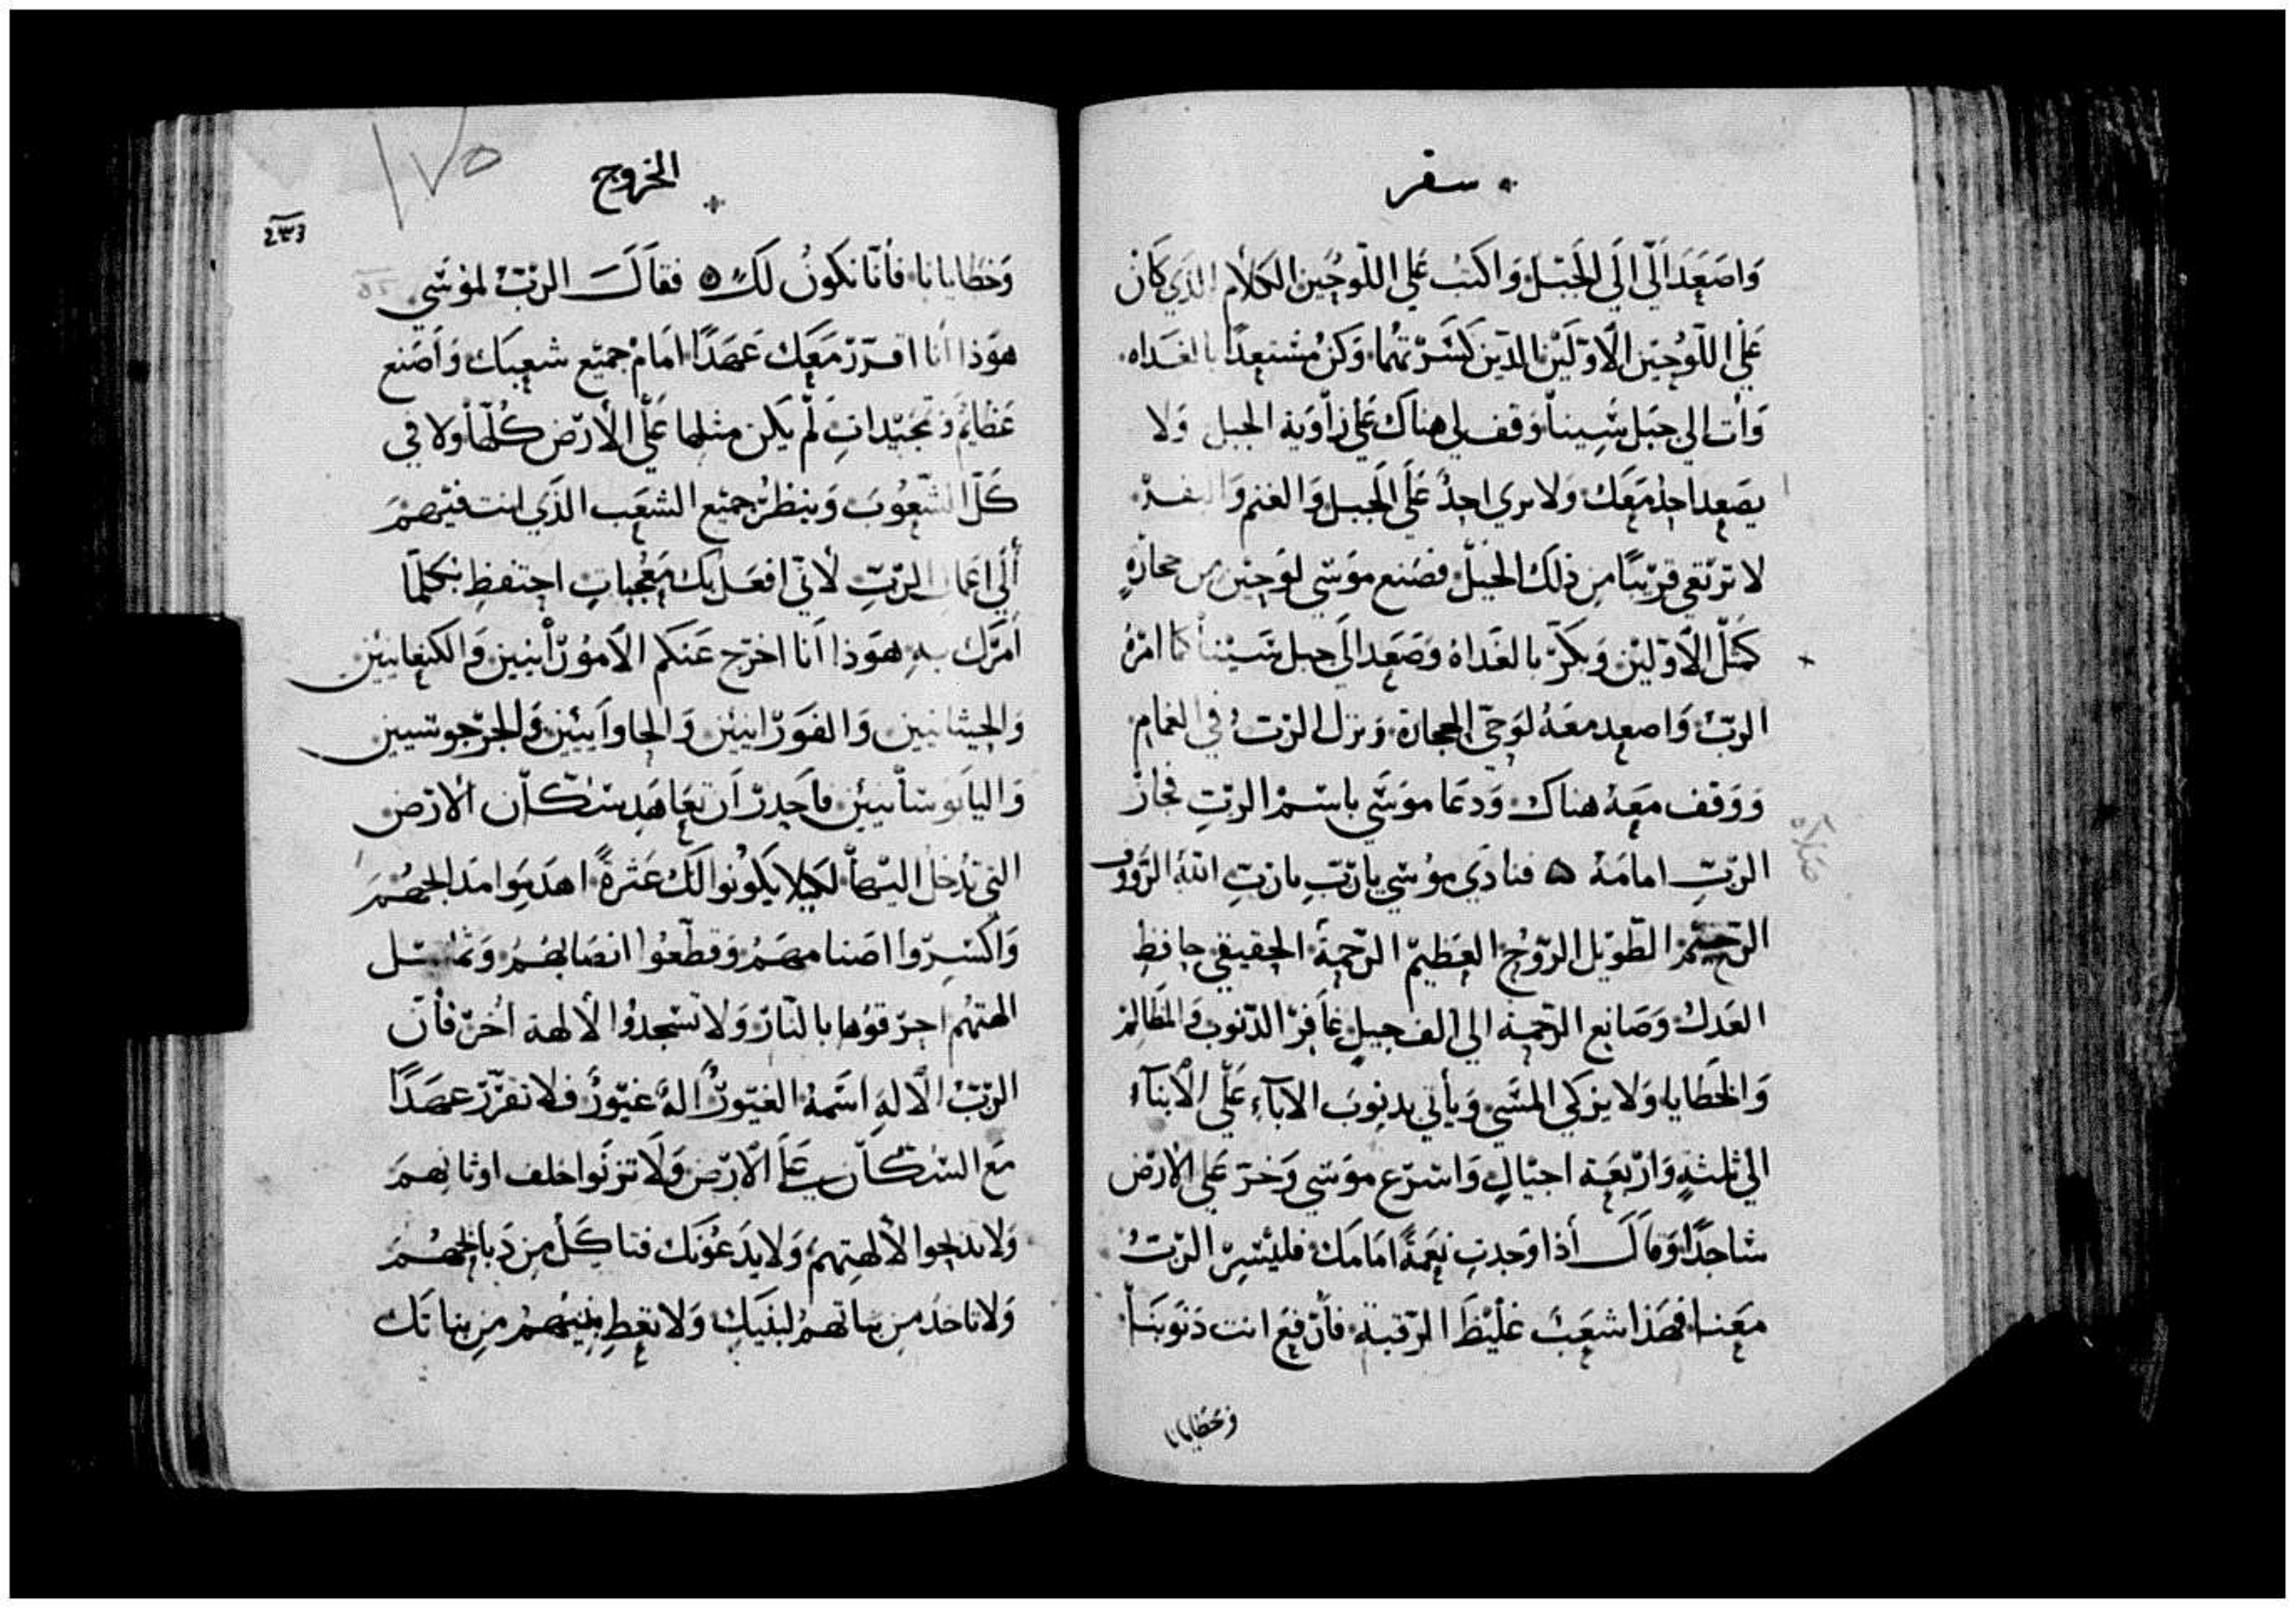 سفر
وَاصَعَد الَي الَي الجَبَل وَاكتب عَلي اللّوحَين الكلام الذي كانَ
عَلي اللّوُحَين الاوّلَيْن الذين كسَرْتهُما وَكنُ مستعِدًا بالغَداه
وَأت الي جَبَل سِينا وَقف لي هناك عَلي زاَويَة الجبل وَلا
يصَعِد احد مَعَك وَلا يري احدٌ عَلَي الجَبل وَالغنم وَالبقر
لا ترتقي قريبًا من ذلك الجَبَل فصَنع موَسي لوَحين من حجارةٍ
كمَثل الاَوّليْن وَبكرّ بالغَداة وَصَعَد الَي جبل سَيْنا كما امرهُ
الربُ وَاصعد معَهُ لوَحيّ الحجارة وَنزل الربُ في الغمام
وَوَقف معَهُ هناك وَدعَا موَسَي باسْم الربِ فجازَ
الربِ امامَهُ ۞ فنادَي موُسي يا ربِ يا ربِ اللهُ الرَووف
الرَحيْم الطّوَيل الروُح العَظيم الرحمَة الحقيقي حافظ
العَدل وَصَانِع الرَحمة الي الف جيلٍ غاَفر الذنوب وَالمظالم
وَالخَطايا وَلا يزكي المسَي وَيأتي بدنوبَ الاَبآءِ عَلَي الاَبنآء
الي ثلثةٍ وَارَبعَة اجيَالٍ وَاسرَع موَسي وَخرَ عَلي الارَض
ساجدًا وَقالَ أذا وَجدتِ نِعَمةً امَامَك فليسِرْ الربُ
معَنا فهَذا شعَبَ غليْظَ الرقبة فأن فعَ انت دنوَبنَا
وَخطايانا
الخروج
١٧٥
وَخطَايانا فأنا نكَونُ لكَ ۞ فقالَ الربُ لموُسَي
هوَذا أنا اقرر مَعَك عَهدًا امَامْ جميَع شعبِكَ وَاَصَنع
عَظايَم وَتمجَيداتِ لَم يَكن مثلها عَلَي الاَرَض كُلّها وَلا في
كَلّ الشّعوُبَ وَينظرُ جميَع الشعَب الذَي انت فيَهمَ
ألَي اعَمال الربِ لأنَي افعَل بك مَعُجباتٍ احتفظِ بكلمّا
اَمَرَك بهِ هوَذا اَنا اخرَج عَنكم الاَموُرأنيين وَالكنِعَانييَن
وَالحيثانيين وَالفَوَرَانييَن وَالحاواَنييَن وَالجَرجوسيين
وَاليابَوسأنييَن فاَحَذر اَن تعَاهَد سكاّن الاَرَض
التي تَدخل اليَها لكيَلا يكوُنوا لَك عَثرةً اهدمِوا مَدابحهُمَ
وَاكسِرَوا اصَنامهَمُ وَقطّعَوُا انصَابهُمُ وَتماثيل
الهتهُم احرَقوُها بالنّار وَلا تسَجدُوا لألهة اُخرَ فأن
الربُ الأله اسَمهُ الغيَورُ الهَ غيَورُ فلا تقرر عهَدًا
مَع السُكاّن عَلَي الاَرَض وَلَا تزنَوا خلف اوثانهِمَ
وَلا تدبحوا لألهتِهمُ وَلا يدَعُونَك فتاكَل من دَبايحهُمَ
وَلا تاخدَ من بناتهمُ لبنيَك وَلا تعَطِ بنيَهمُ من بناتَك